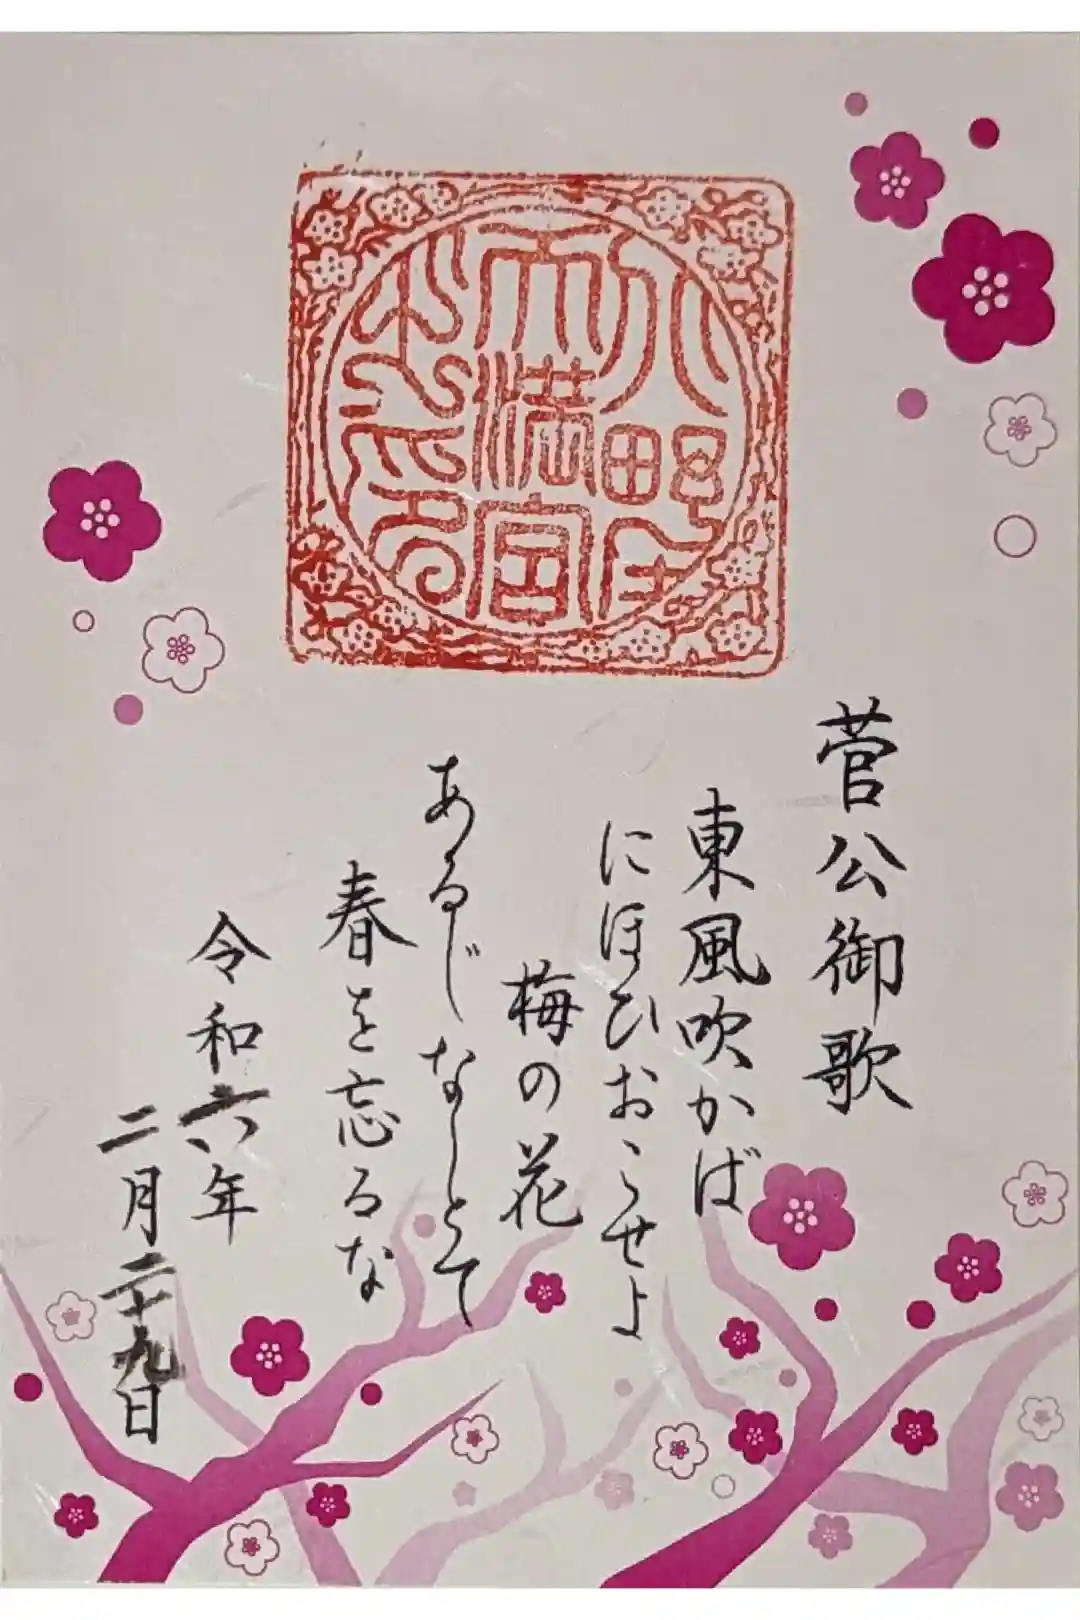 天満宮
菅公御歌
東風吹かば
にほひおこせよ
梅の花
あるじなしとて
春を忘るな
令和六年
二月二十九日